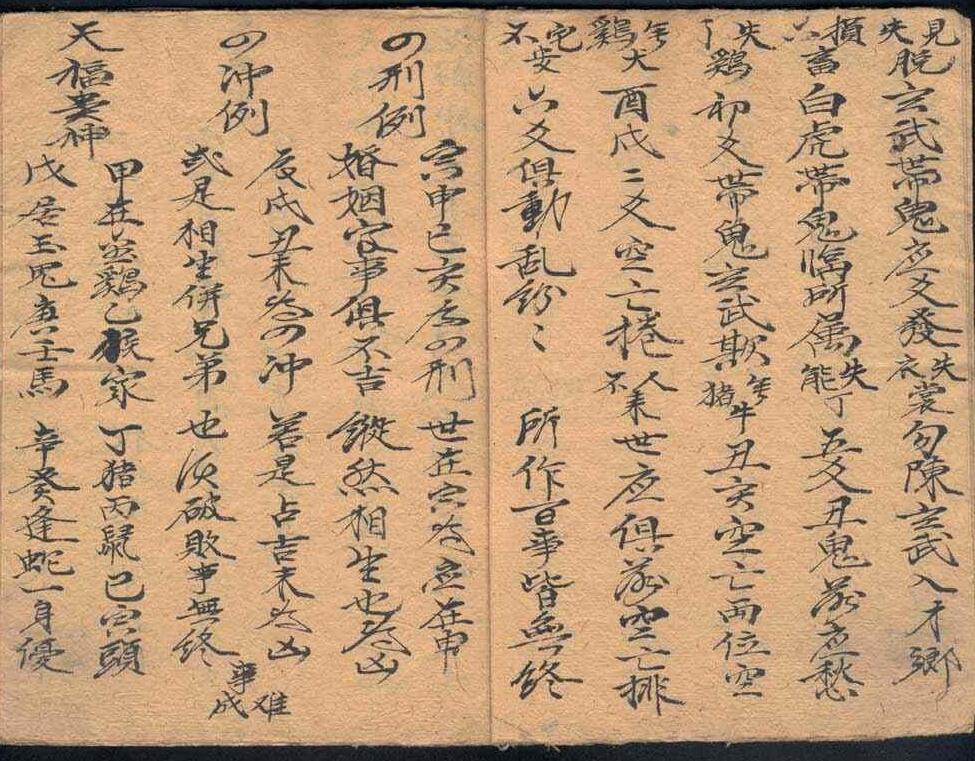 見失脱玄武帶鬼应爻發失衣裳勾陳玄武入才鄉
損六畜白虎帶鬼臨所属失能丁五爻丑鬼落应愁
失丁鷄初爻帶鬼玄武欺年猪牛丑亥空亡两位空
年鷄犬酉戌二爻空亡捲人不来世应俱落空亡排
宅不安六爻俱動乱纷〻所作百事皆無终
四刑例
寅申巳亥为四刑世在寅为应在申
婚姻官事俱不吉縱然相生也为凶
四冲例
辰戌丑未为四冲若是占吉未为凶
或是相生併兄弟也须破敗事無终
事难成
天福贵神
甲在金鷄乙猴家丁猪丙鼠己寅頭
戊居玉兔庚壬馬辛癸逢蛇一身優